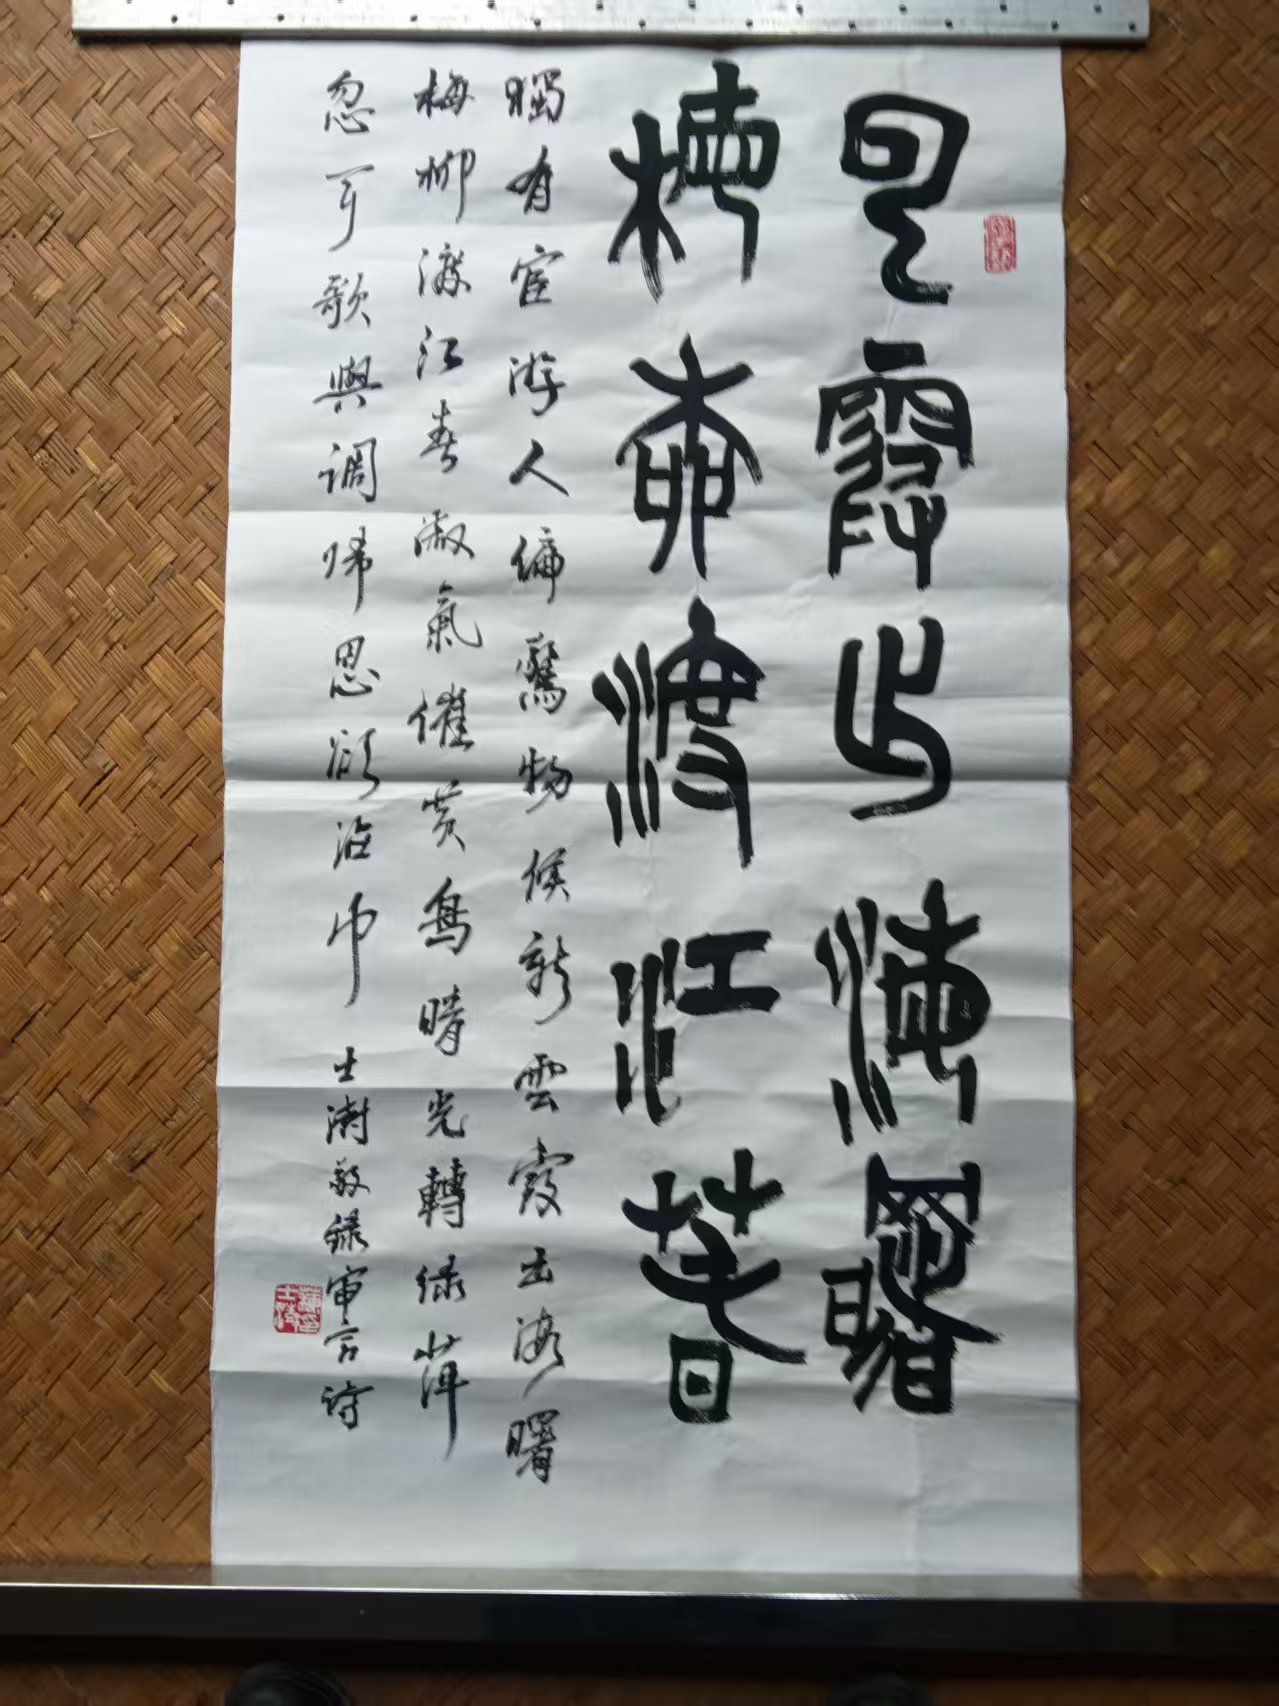 云霞出海曙
梅柳渡江春
獨有宦游人偏驚物候新雲霞出海曙
梅柳渡江春淑氣催黄鳥晴光轉绿蘋
忽聞歌古調歸思欲沾巾 士澍敬録審言詩